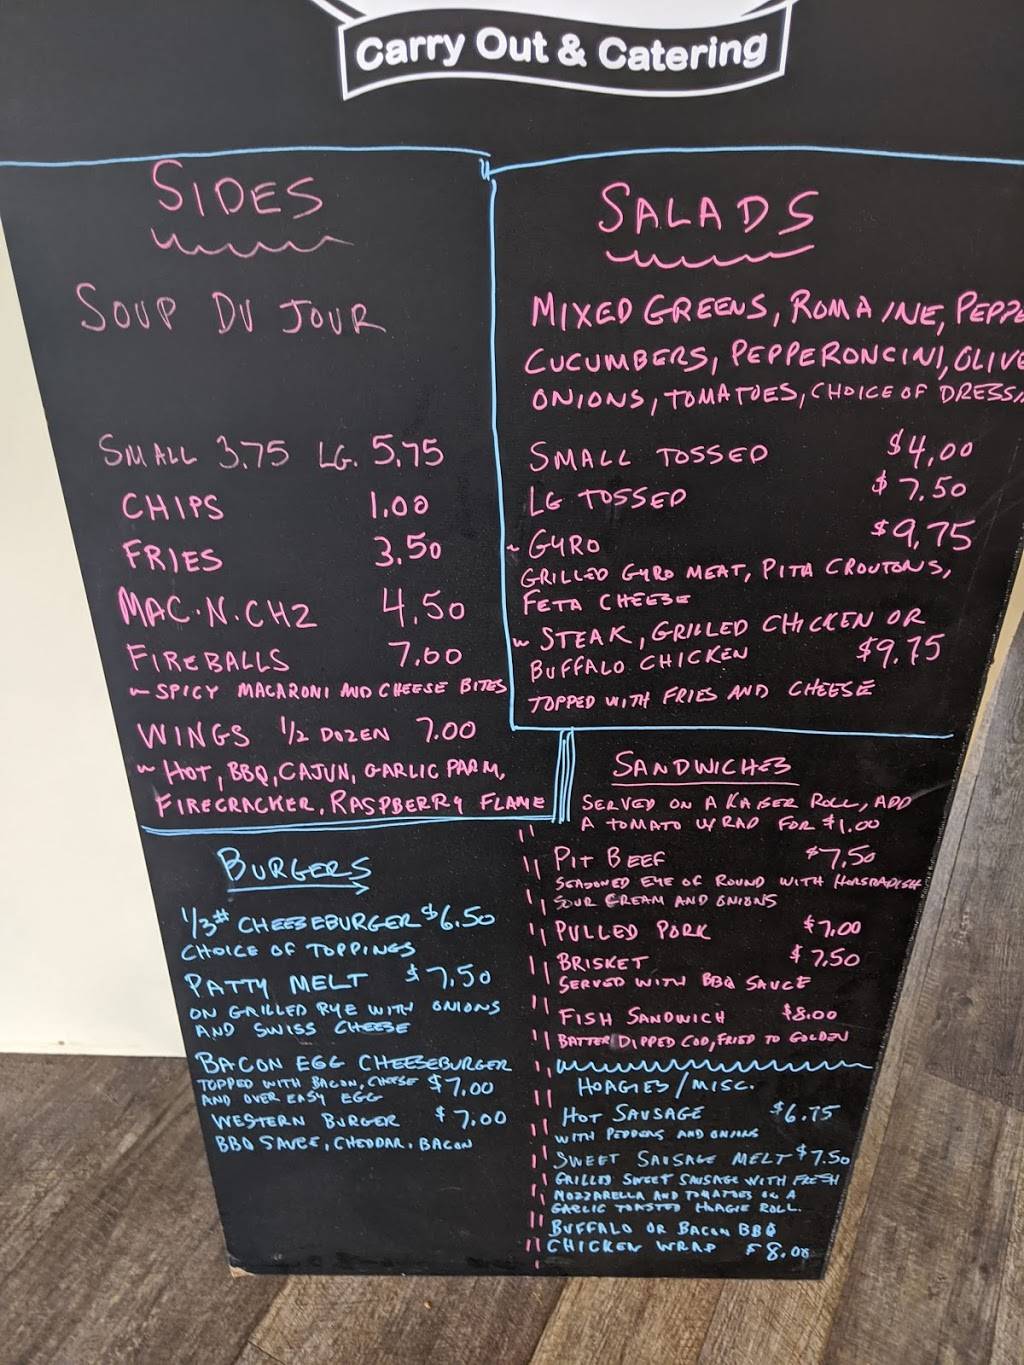 Carry Out & Catering
SIDES
SOUP DU JOUR
SMALL 3.75 LG. 5.75
CHIPS 1.00
FRIES 3.50
MAC.N.CHZ 4.50
FIREBALLS 7.00
~ SPICY MACARONI AND CHEESE BITES
WINGS 1/2 DOZEN 7.00
~ HOT, BBQ, CAJUN, GARLIC PARM,
FIRECRACKER, RASPBERRY FLAME
SALADS
MIXED GREENS, ROMAINE, PEPPE
CUCUMBERS, PEPPERONCINI, OLIVE
ONIONS, TOMATOES, CHOICE OF DRESSI
SMALL TOSSED $4.00
LG TOSSED $7.50
~ GYRO $9.75
GRILLED GYRO MEAT, PITA CROUTONS,
FETA CHEESE
~ STEAK, GRILLED CHICKEN OR
BUFFALO CHICKEN $9.75
TOPPED WITH FRIES AND CHEESE
BURGERS
1/3# CHEESEBURGER $6.50
CHOICE OF TOPPINGS
PATTY MELT $7.50
ON GRILLED RYE WITH ONIONS
AND SWISS CHEESE
BACON EGG CHEESEBURGER
TOPPED WITH BACON, CHEESE $7.00
AND OVER EASY EGG
WESTERN BURGER $7.00
BBQ SAUCE, CHEDDAR, BACON
SANDWICHES
SERVED ON A KAISER ROLL, ADD
A TOMATO WRAP FOR $1.00
PIT BEEF $7.50
SEASONED EYE OF ROUND WITH HORSRADISH
SOUR CREAM AND ONIONS
PULLED PORK $7.00
BRISKET $7.50
SERVED WITH BBQ SAUCE
FISH SANDWICH $8.00
BATTER DIPPED COD, FRIED TO GOLDEN
HOAGIES/MISC.
HOT SAUSAGE $6.75
WITH PEPPERS AND ONIONS
SWEET SAUSAGE MELT $7.50
GRILLED SWEET SAUSAGE WITH FRESH
MOZZARELLA AND TOMATOES ON A
GARLIC TOASTED HOAGIE ROLL.
BUFFALO OR BACON BBQ
CHICKEN WRAP $8.00